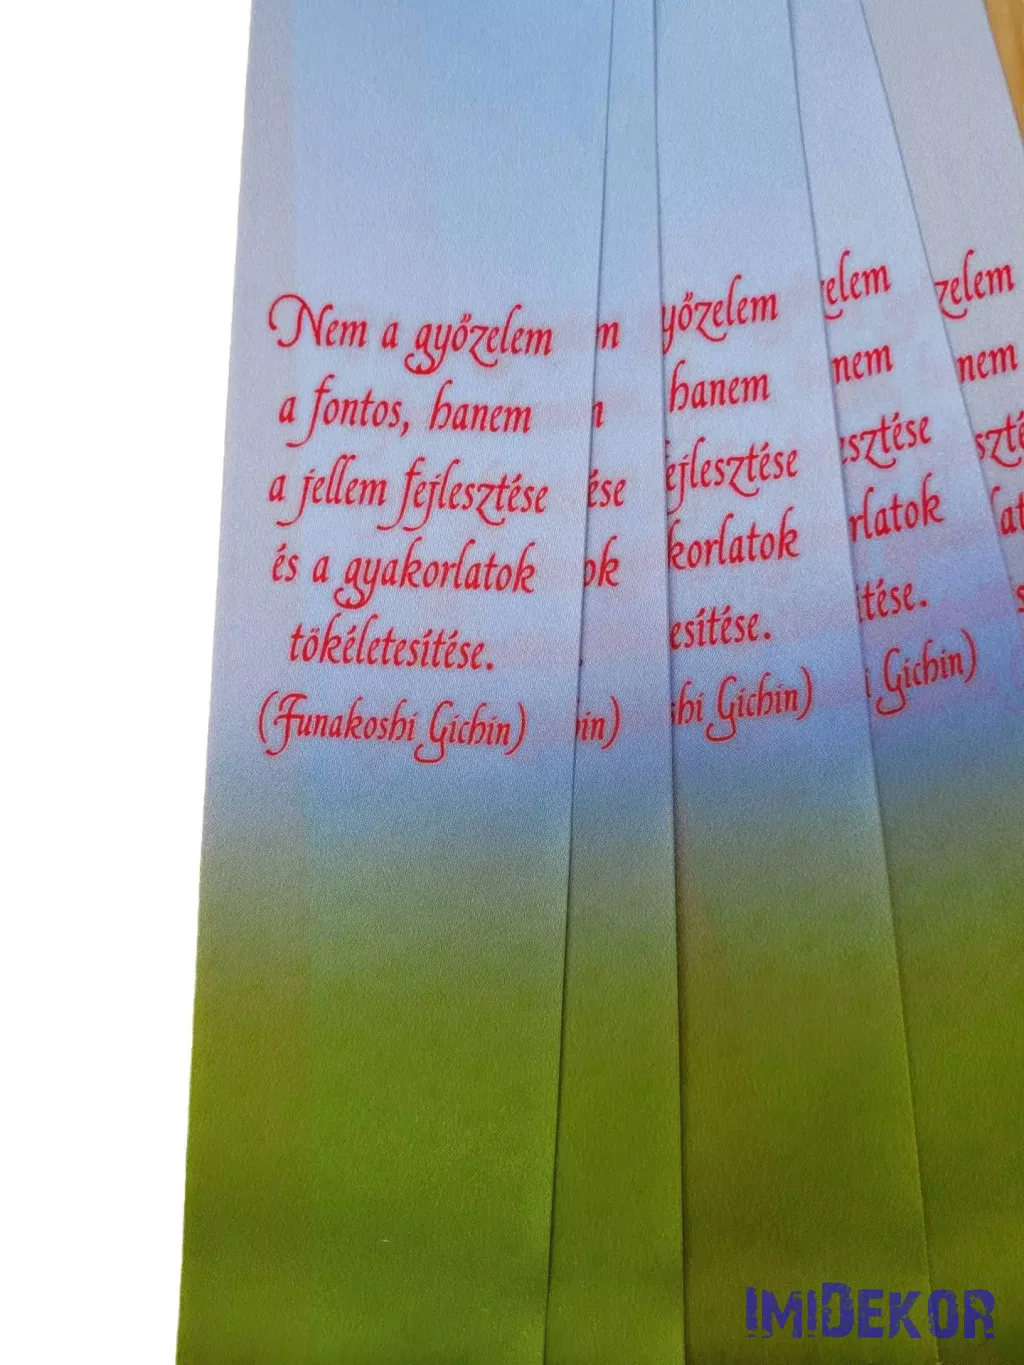 Nem a győzelem
a fontos, hanem
a jellem fejlesztése
és a gyakorlatok
tökéletesítése.
(Funakoshi Gichin)
m
ése
ok
in)
győzelem
hanem
fejlesztése
korlatok
esítése.
shi Gichin)
zelem
nem
esztése
rlatok
ítése.
i Gichin)
zelem
nem
szté
lat
IMIDEKOR